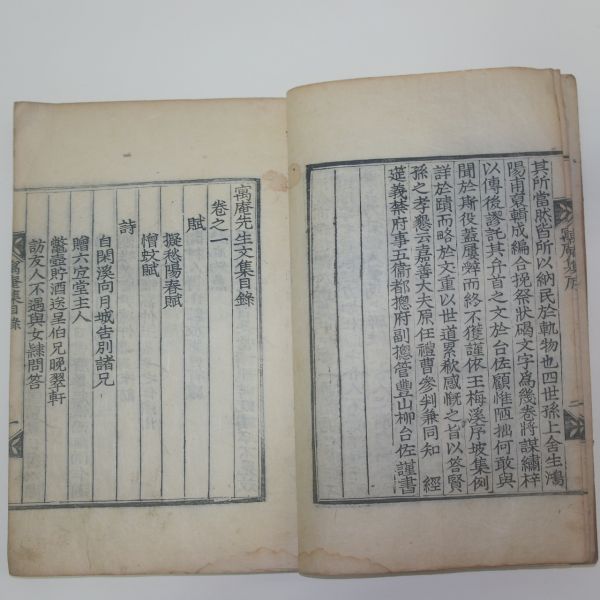 其所當然皆所以納民於軌物也四世孫上舍生鴻
陽甫裒輯成編合挽祭狀碣文字為幾卷將謀繡梓
以傳後謬託其弁首之文於台佐顧惟陋拙何敢與
聞於斯役蓋屢辭而終不獲謹依王梅溪序坡集例
詳於蹟而略於文重以世道累欷感慨之旨以答賢
孫之孝懇云嘉善大夫原任禮曹參判兼同知 經
筵義禁府事五衛都摠府副摠管豐山柳台佐謹書
寓庵先生文集目錄
卷之一
賦
擬愁陽春賦
憎蚊賦
詩
自閑溪向月城告別諸兄
贈六宜堂主人
鱉壺貯酒送呈伯兄晚翠軒
訪友人不遇與女隷問答
寓庵集目錄
一